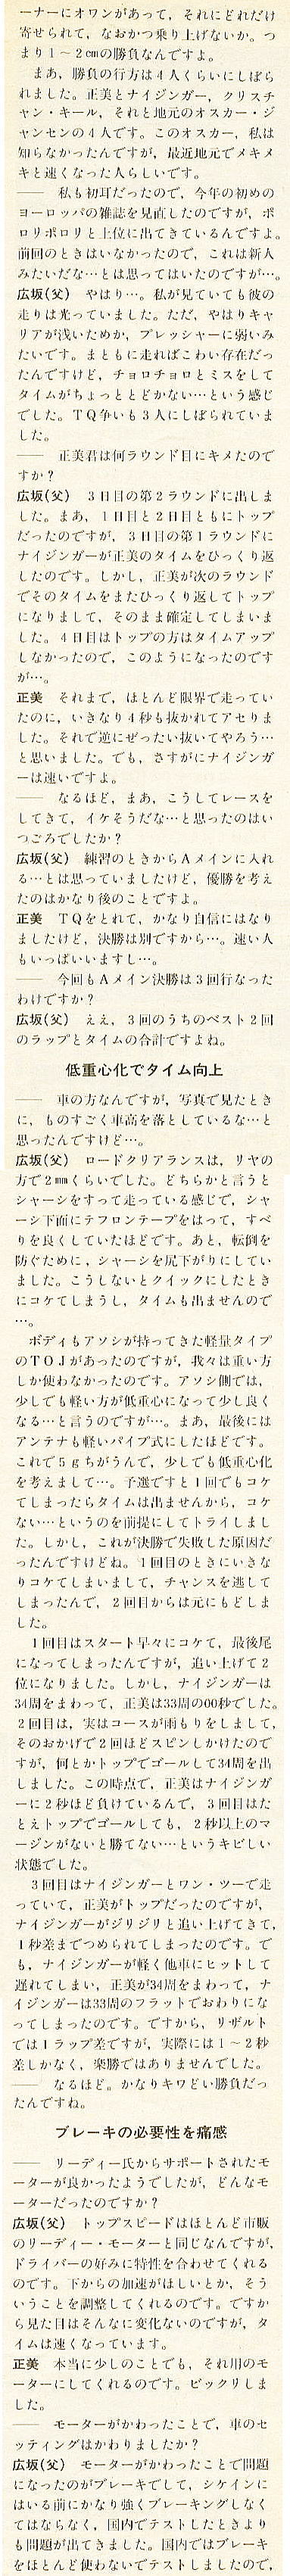 ーナーにオワンがあって，それにどれだけ
寄せられて，なおかつ乗り上げないか。つ
まり1～2cmの勝負なんですよ。
　まあ，勝負の行方は4人くらいにしぼら
れました。正美とナイジンガー，クリスチ
ャン・キール，それと地元のオスカー・ジ
ャンセンの4人です。このオスカー，私は
知らなかったんですが，最近地元でメキメ
キと速くなった人らしいです。
――　私も初耳だったので，今年の初めの
ヨーロッパの雑誌を見直したのですが，ポ
ロリポロリと上位に出てきているんですよ。
前回のときはいなかったので，これは新人
みたいだな…とは思ってはいたのですが…。
広坂(父)　やはり…。私が見ていても彼の
走りは光っていました。ただ，やはりキャ
リアが浅いためか，プレッシャーに弱いみ
たいです。まともに走ればこわい存在だっ
たんですけど，チョロチョロとミスをして
タイムがちょっととどかない…という感じ
でした。TQ争いも3人にしぼられていま
した。
――　正美君は何ラウンド目にキメたので
すか？
広坂(父)　3日目の第2ラウンドに出しま
した。まあ，1日目と2日目ともにトップ
だったのですが，3日目の第1ラウンドに
ナイジンガーが正美のタイムをひっくり返
したのです。しかし，正美が次のラウンド
でそのタイムをまたひっくり返してトップ
になりまして，そのまま確定してしまいま
した。4日目はトップの方はタイムアップ
しなかったので，このようになったのです
が…。
正美　それまで，ほとんど限界で走ってい
たのに，いきなり4秒も抜かれてアセりま
した。それで逆にぜったい抜いてやろう…
と思いました。でも，さすがにナイジンガ
ーは速いですよ。
――　なるほど，まあ，こうしてレースを
してきて，イケそうだな…と思ったのはい
つごろでしたか？
広坂(父)　練習のときからAメインに入れ
る…とは思っていましたけど，優勝を考え
たのはかなり後のことですよ。
正美　TQをとれて，かなり自信にはなり
ましたけど，決勝は別ですから…。速い人
もいっぱいいますし…。
――　今回もAメイン決勝は3回行なった
わけですか？
広坂(父)　ええ，3回のうちのベスト2回
のラップとタイムの合計ですよね。
低重心化でタイム向上
――　車の方なんですが，写真で見たとき
に，ものすごく車高を落としているな…と
思ったんですけど…。
広坂(父)　ロードクリアランスは，リヤの
方で2mmくらいでした。どちらかと言うと
シャーシをすって走っている感じで，シャ
ーシ下面にテフロンテープをはって，すべ
りを良くしていたほどです。あと，転倒を
防ぐために，シャーシを尻下がりにしてい
ました。こうしないとクイックにしたとき
にコケてしまうし，タイムも出ませんので
…。
　ボディもアソシが持ってきた軽量タイプ
のTOJがあったのですが，我々は重い方
しか使わなかったのです。アソシ側では，
少しでも軽い方が低重心になって少し良く
なる…と言うのですが…。まあ，最後には
アンテナも軽いパイプ式にしたほどです。
これで5gちがうんで，少しでも低重心化
を考えまして…。予選ですと1回でもコケ
てしまったらタイムは出ませんから，コケ
ない…というのを前提にしてトライしまし
た。しかし，これが決勝で失敗した原因だ
ったんですけどね。1回目のときにいきな
りコケてしまいまして，チャンスを逃して
しまったんで，2回目からは元にもどしま
した。
　1回目はスタート早々にコケて，最後尾
になってしまったんですが，追い上げて2
位になりました。しかし，ナイジンガーは
34周をまわって，正美は33周の00秒でした。
2回目は，実はコースが雨もりをしまして，
そのおかげで2回ほどスピンしかけたので
すが，何とかトップでゴールして34周を出
しました。この時点で，正美はナイジンガ
ーに2秒ほど負けているんで，3回目はた
とえトップでゴールしても，2秒以上のマ
ージンがないと勝てない…というキビしい
状態でした。
　3回目はナイジンガーとワン・ツーで走
っていて，正美がトップだったのですが，
ナイジンガーがジリジリと追い上げてきて，
1秒差までつめられてしまったのです。で
も，ナイジンガーが軽く他車にヒットして
遅れてしまい，正美が34周をまわって，ナ
イジンガーは33周のフラットでおわりにな
ってしまったのです。ですから，リザルト
では1ラップ差ですが，実際には1～2秒
差しかなく，楽勝ではありませんでした。
――　なるほど。かなりキワどい勝負だっ
たんですね。
ブレーキの必要性を痛感
――　リーディー氏からサポートされたモ
ーターが良かったようでしたが，どんなモ
ーターだったのですか？
広坂(父)　トップスピードはほとんど市販
のリーディー・モーターと同じなんですが，
ドライバーの好みに特性を合わせてくれる
のです。下からの加速がほしいとか，そう
いうことを調整してくれるのです。ですか
ら見た目はそんなに変化ないのですが，タ
イムは速くなっています。
正美　本当に少しのことでも，それ用のモ
ーターにしてくれるのです。ビックリしま
した。
――　モーターがかわったことで，車のセ
ッティングはかわりましたか？
広坂(父)　モーターがかわったことで問題
になったのがブレーキでして，シケインに
はいる前にかなり強くブレーキングしなく
てはならなく，国内でテストしたときより
も問題が出てきました。国内ではブレーキ
をほとんど使わないでテストしましたので，